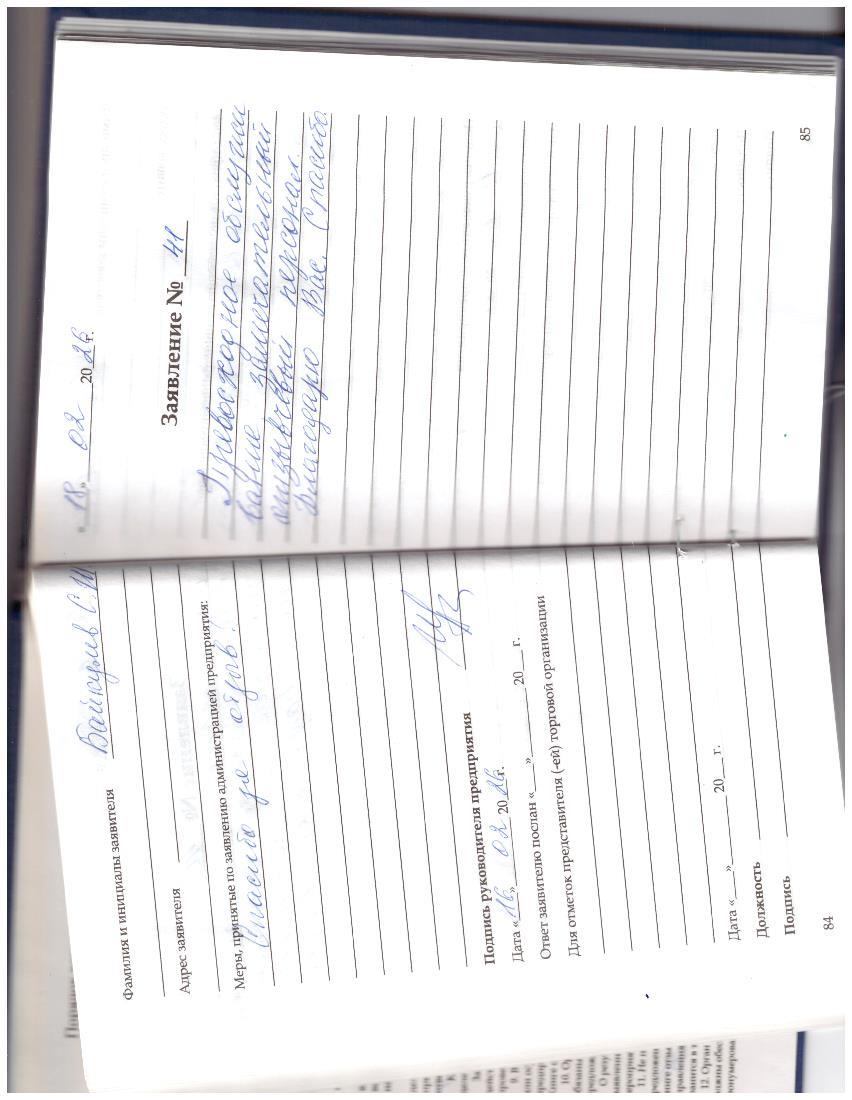 Фамилия и инициалы заявителя Байкулив С.Ш
Адрес заявителя
Меры, принятые по заявлению администрацией предприятия:
Спасибо за отзыв!
Подпись руководителя предприятия
Дата «16» 02 2026г.
Ответ заявителю послан «___»________20___г.
Для отметок представителя (-ей) торговой организации
Дата «___»________20___г.
Должность
Подпись
84
«18» 02 2026г.
Заявление № 41
Превосходное обслужи
вание замечательный
отзывчевый персонал.
Благодарю Вас. Спасибо.
85
9. В
10. О
О резу
11. Не п
12. Орган